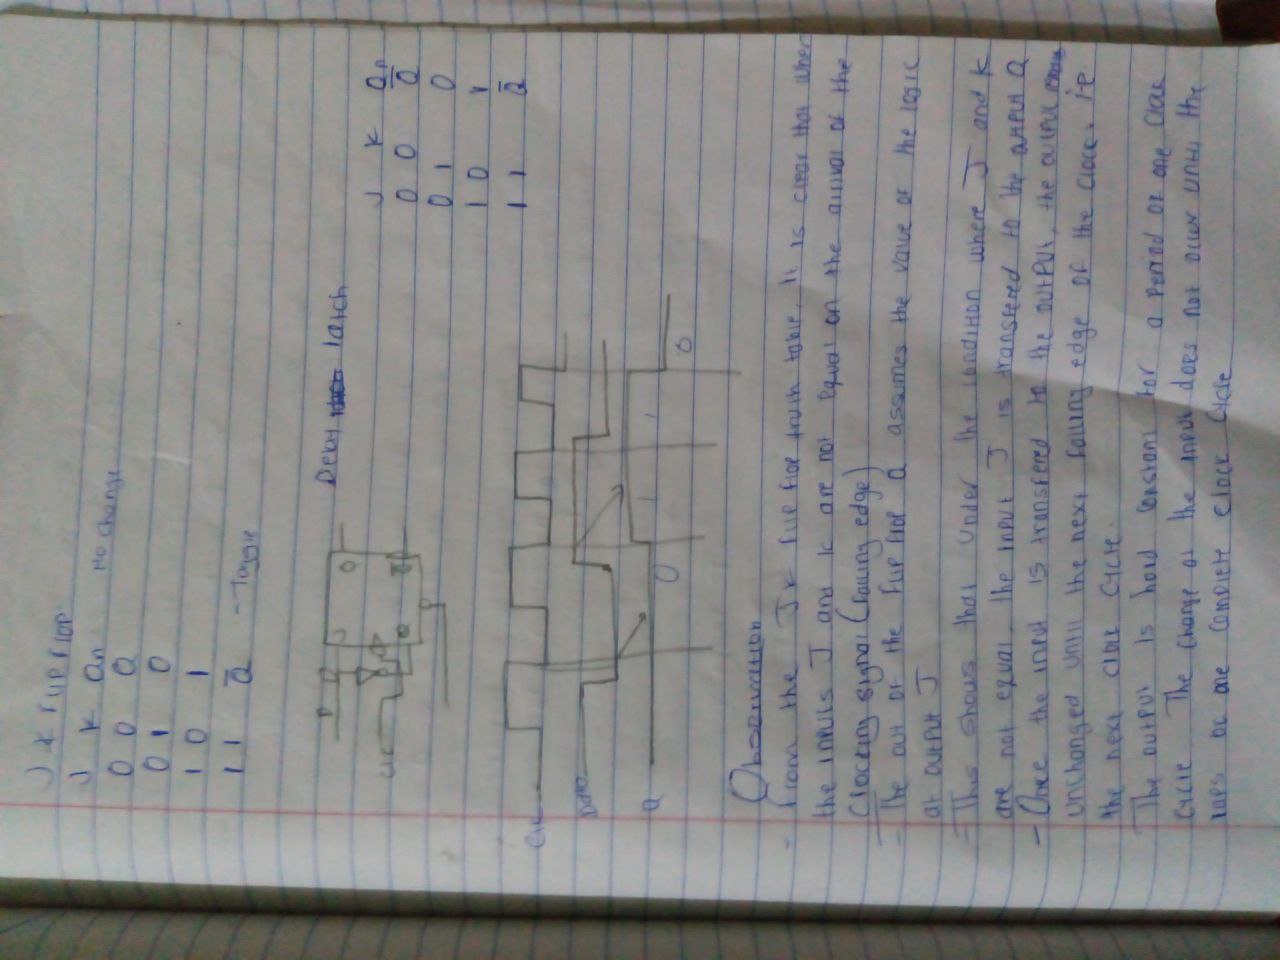 J K FLIP FLOP
J K Qn No change
0 0 Q
0 1 0
1 0 1
1 1 Q̅ - Toggle
Delay latch
D
J Q
CLK
Q̅
J K Qn
0 0 Q̅
0 1 0
1 0 1
1 1 Q̅
CLK
Data
Q 0 1 1 0
Observation
- From the JK flip flop truth table. It is clear that when
the inputs J and K are not equal on the arrival of the
Clocking signal (falling edge)
- The out of the flip flop Q assumes the value of the logic
at output J
- This shows that under the condition where J and K
are not equal. the input J is transfered to the output Q
- Once the input is transfered to the output, the output remain
unchanged until the next falling edge of the clock. i.e
the next clock cycle.
The output is hold constant for a period of one clock
cycle. The change at the input does not occur until the
laps of one complete clock cycle